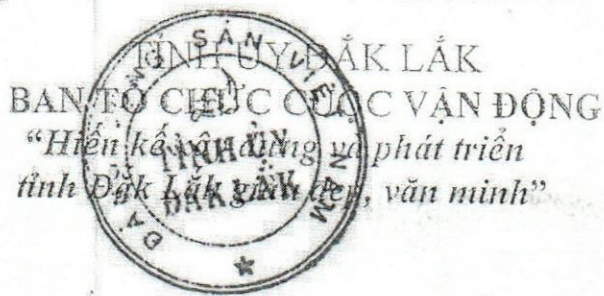 TỈNH ỦY ĐẮK LẮK
BAN TỔ CHỨC CUỘC VẬN ĐỘNG
“Hiến kế xây dựng và phát triển
tỉnh Đắk Lắk giàu đẹp, văn minh”
ĐẢNG CỘNG SẢN VIỆT NAM
TỈNH ỦY
ĐẮK LẮK